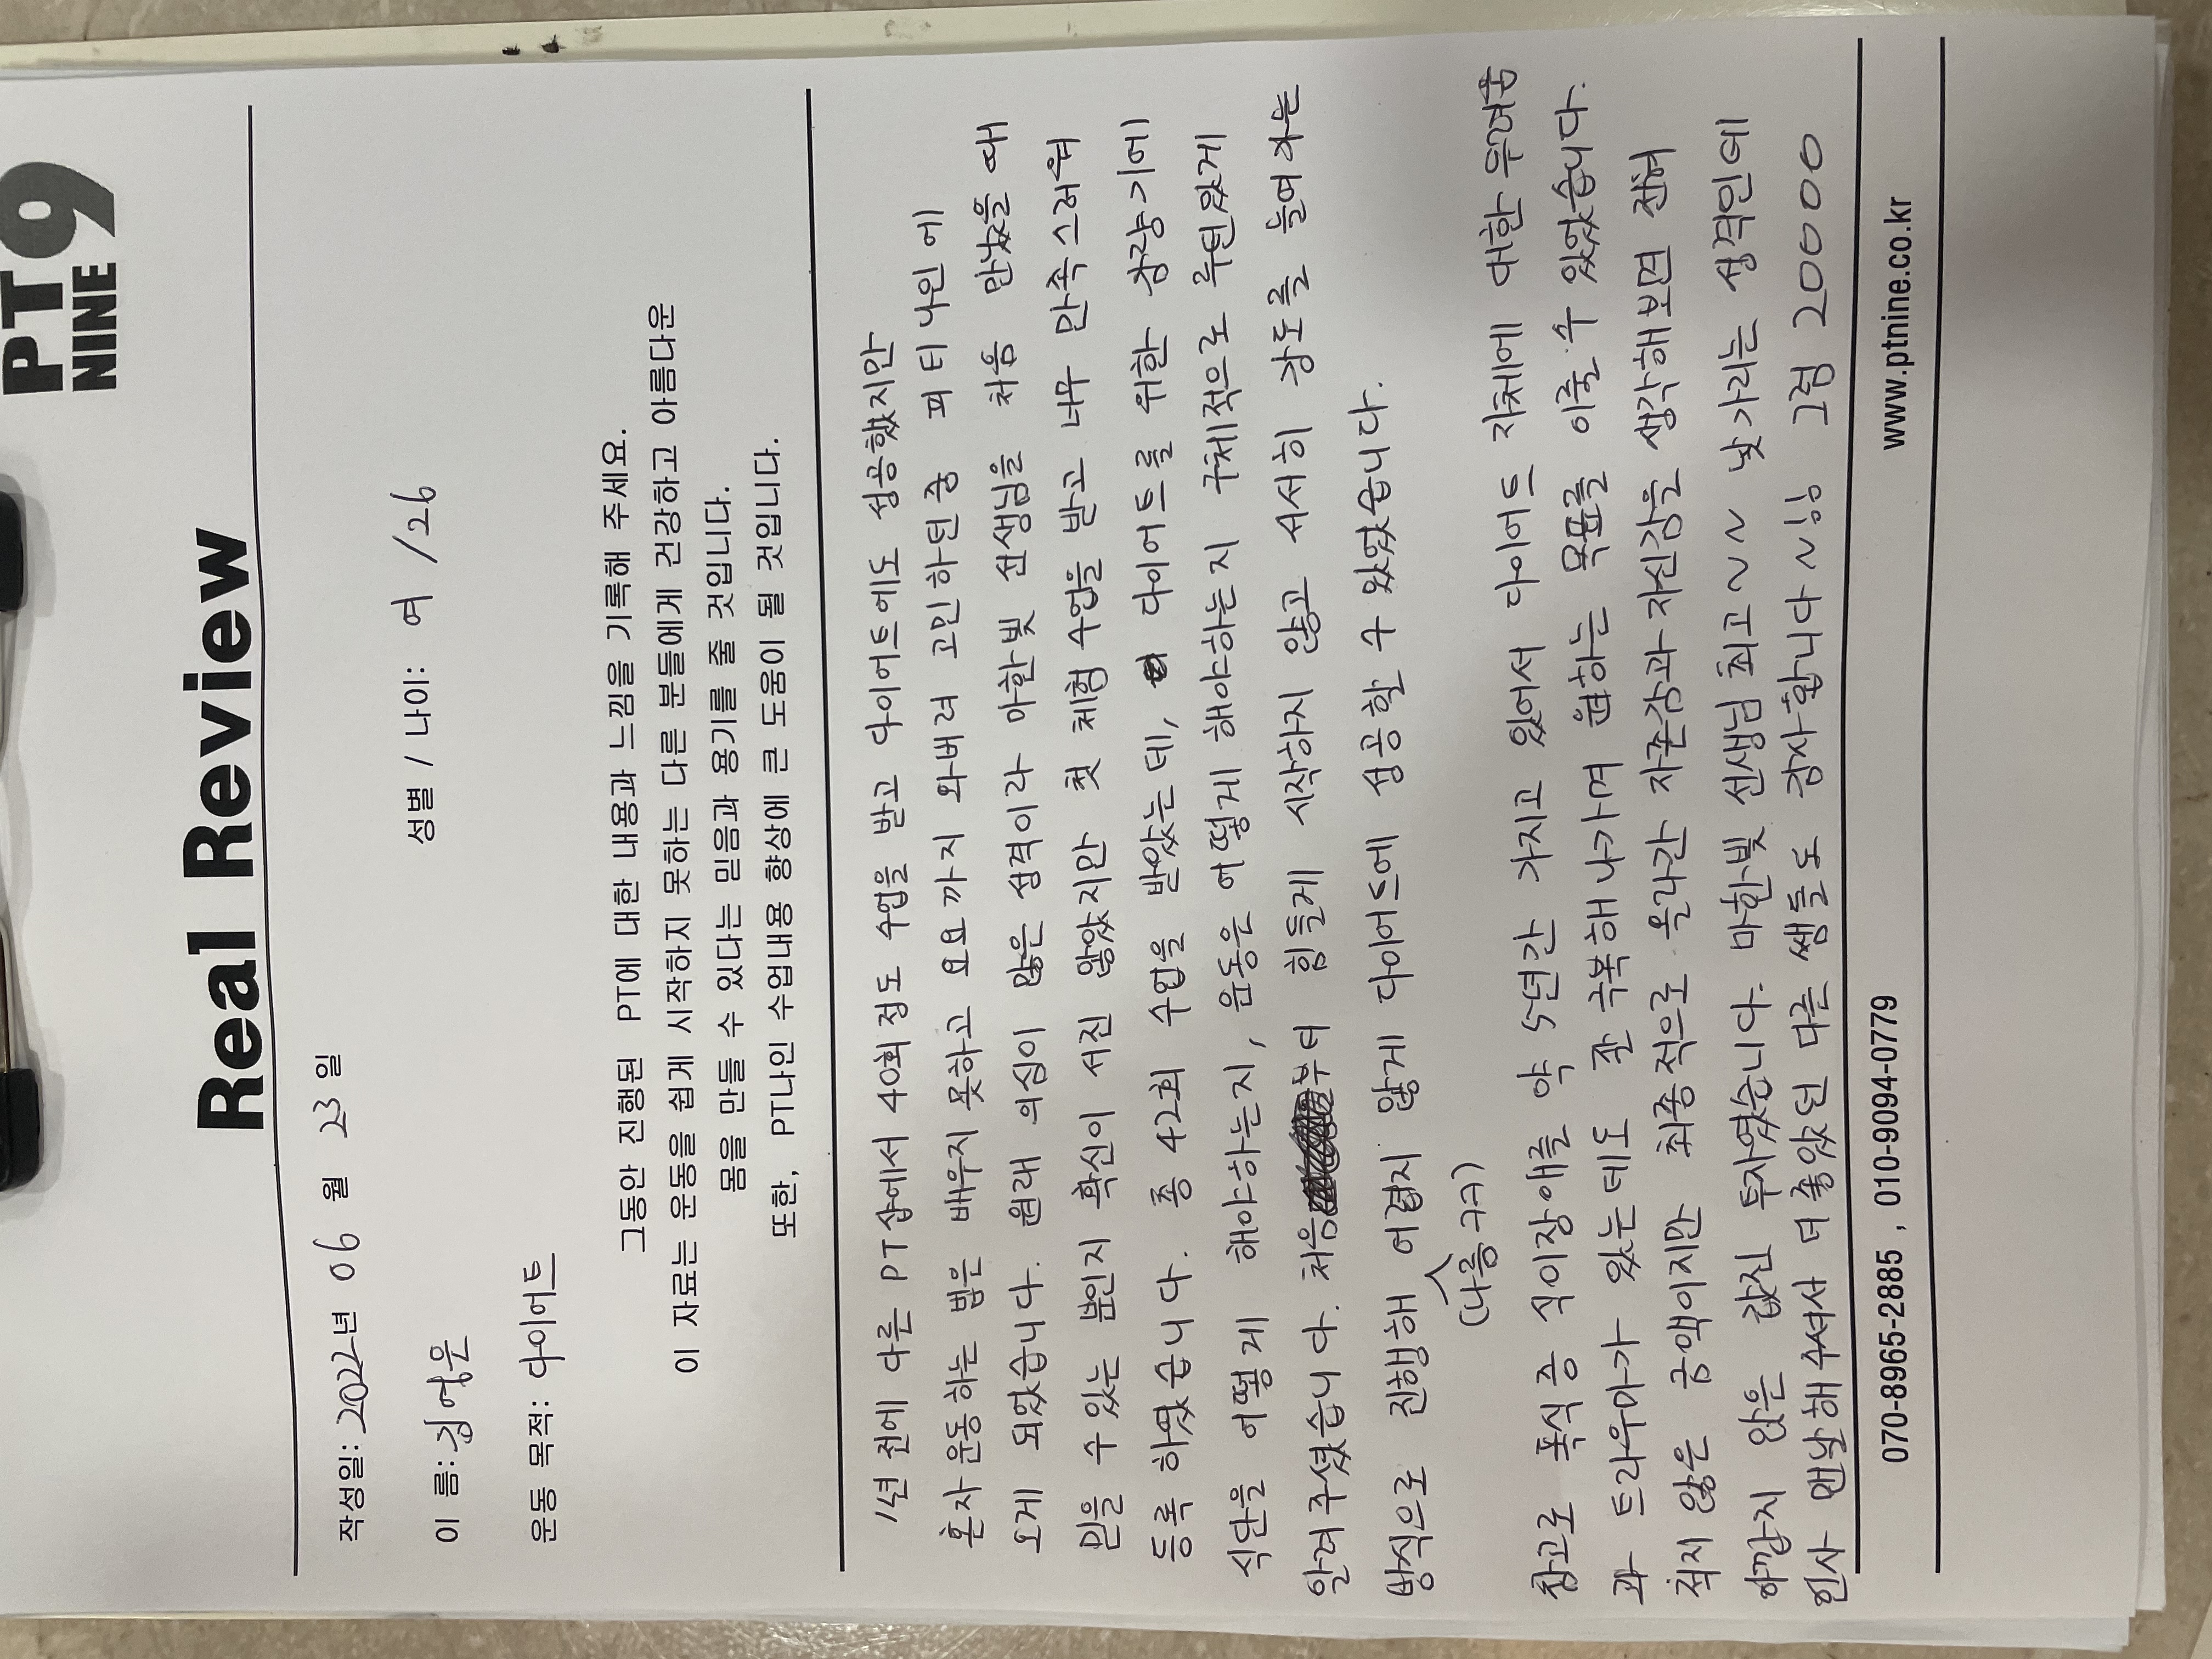 PT9
NINE
Real Review
작성일: 2022년 06 월 23 일
이 름: 김영은 성별 / 나이: 여 /26
운동 목적: 다이어트
그동안 진행된 PT에 대한 내용과 느낌을 기록해 주세요.
이 자료는 운동을 쉽게 시작하지 못하는 다른 분들에게 건강하고 아름다운
몸을 만들 수 있다는 믿음과 용기를 줄 것입니다.
또한, PT나인 수업내용 향상에 큰 도움이 될 것입니다.
1년 전에 다른 PT샵에서 40회 정도 수업을 받고 다이어트에도 성공했지만
혼자 운동하는 법은 배우지 못하고 요요 까지 와버려 고민하던 중 피티나인에
오게 되었습니다. 원래 의심이 많은 성격이라 마한빛 선생님을 처음 만났을 때
믿을 수 있는 분인지 확신이 서진 않았지만 첫 체험수업을 받고 너무 만족스러워
등록 하였습니다. 총 42회 수업을 받았는데, 다이어트를 위한 감량기에
식단을 어떻게 해야하는지, 운동은 어떻게 해야하는지 구체적으로 루틴있게
알려주셨습니다. 처음부터 힘들게 시작하지 않고 서서히 강도를 높여가는
방식으로 진행해 어렵지 않게 다이어트에 성공할 수 있었습니다.
(나름ㅋㅋ)
참고로 폭식증 식이장애를 약 5년간 가지고 있어서 다이어트 자체에 대한 두려움
과 트라우마가 있는데도 잘 극복해나가며 원하는 목표를 이룰 수 있었습니다.
적지 않은 금액이지만 최종적으로 올라간 자존감과 자신감을 생각해보면 전혀
아깝지 않은 값진 투자였습니다. 마한빛 선생님 최고~~ 낯가리는 성격인데
인사 맨날해주셔서 더 좋았던 다른 쌤들도 감사합니다~!! 그럼 20000
070-8965-2885 , 010-9094-0779 www.ptnine.co.kr